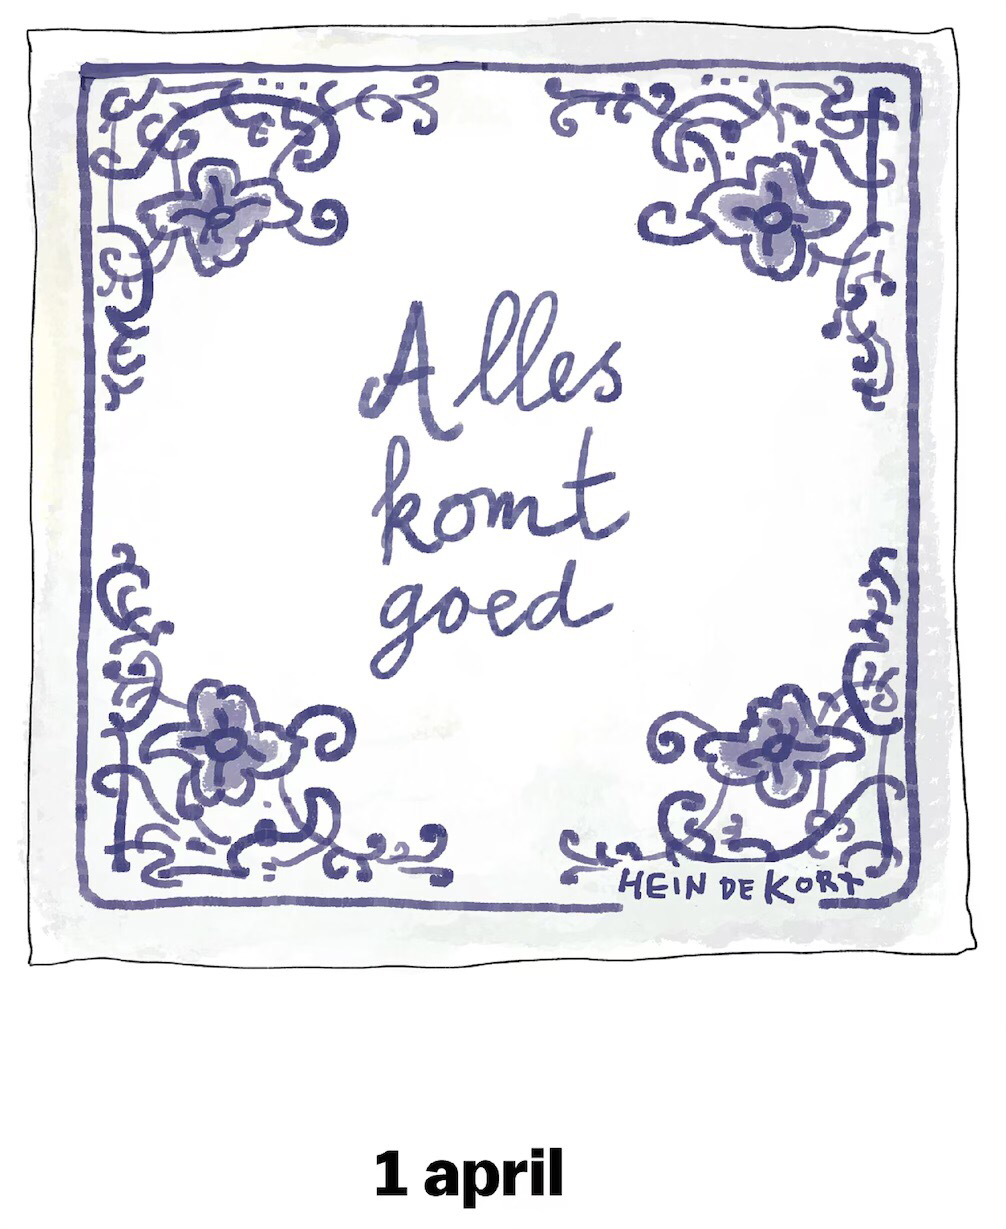 Alles
komt
goed
HEIN DE KORT
1 april